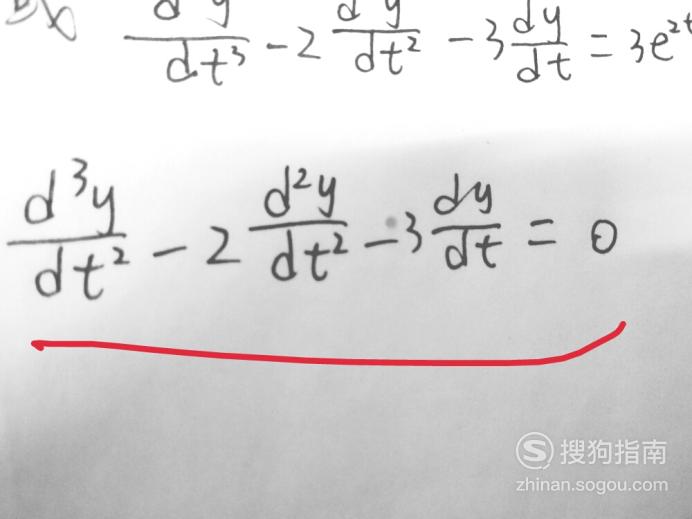 d³y/dt³ - 2 d²y/dt² - 3 dy/dt = 3e²ᵗ
d³y/dt² - 2 d²y/dt² - 3 dy/dt = 0
S 搜狗指南
zhinan.sogou.com